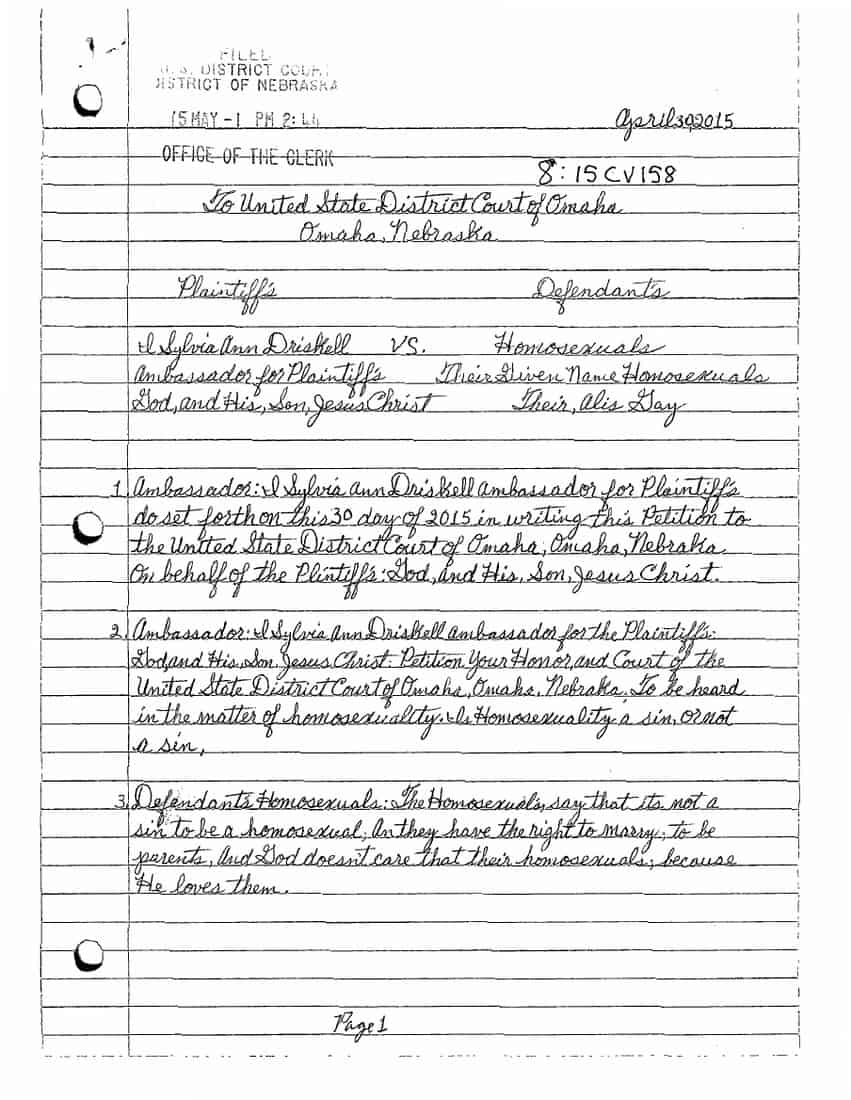 FILED
U.S. DISTRICT COURT
DISTRICT OF NEBRASKA
15 MAY -1 PM 2:44
OFFICE OF THE CLERK
April 30, 2015
8:15CV158
To United State District Court of Omaha
Omaha, Nebraska
Plaintiff's Defendants
I Sylvia Ann Driskell VS. Homosexuals
Ambassador for Plaintiff's Their Given Name Homosexuals
God, and His, Son, Jesus Christ Their, Alis Gay
1. Ambassador: I Sylvia Ann Driskell Ambassador for Plaintiff's
do set forth on this 30 day of 2015 in writing this Petition to
the United State District Court of Omaha, Omaha, Nebraka.
On behalf of the Plintiff's: God, and His, Son, Jesus Christ.
2. Ambassador: I Sylvia Ann Driskell ambassador for the Plaintiff's:
God, and His, Son, Jesus Christ: Petition Your Honor, and Court of the
United State District Court of Omaha, Omaha, Nebraka. To be heard
in the matter of homosexuality. Is Homosexuality a sin, or not
a sin,
3. Defendants Homosexuals: The Homosexuals, say that its not a
sin to be a homosexual, An they have the right to marry; to be
parents, And God doesnt care that their homosexuals; because
He loves them.
Page 1